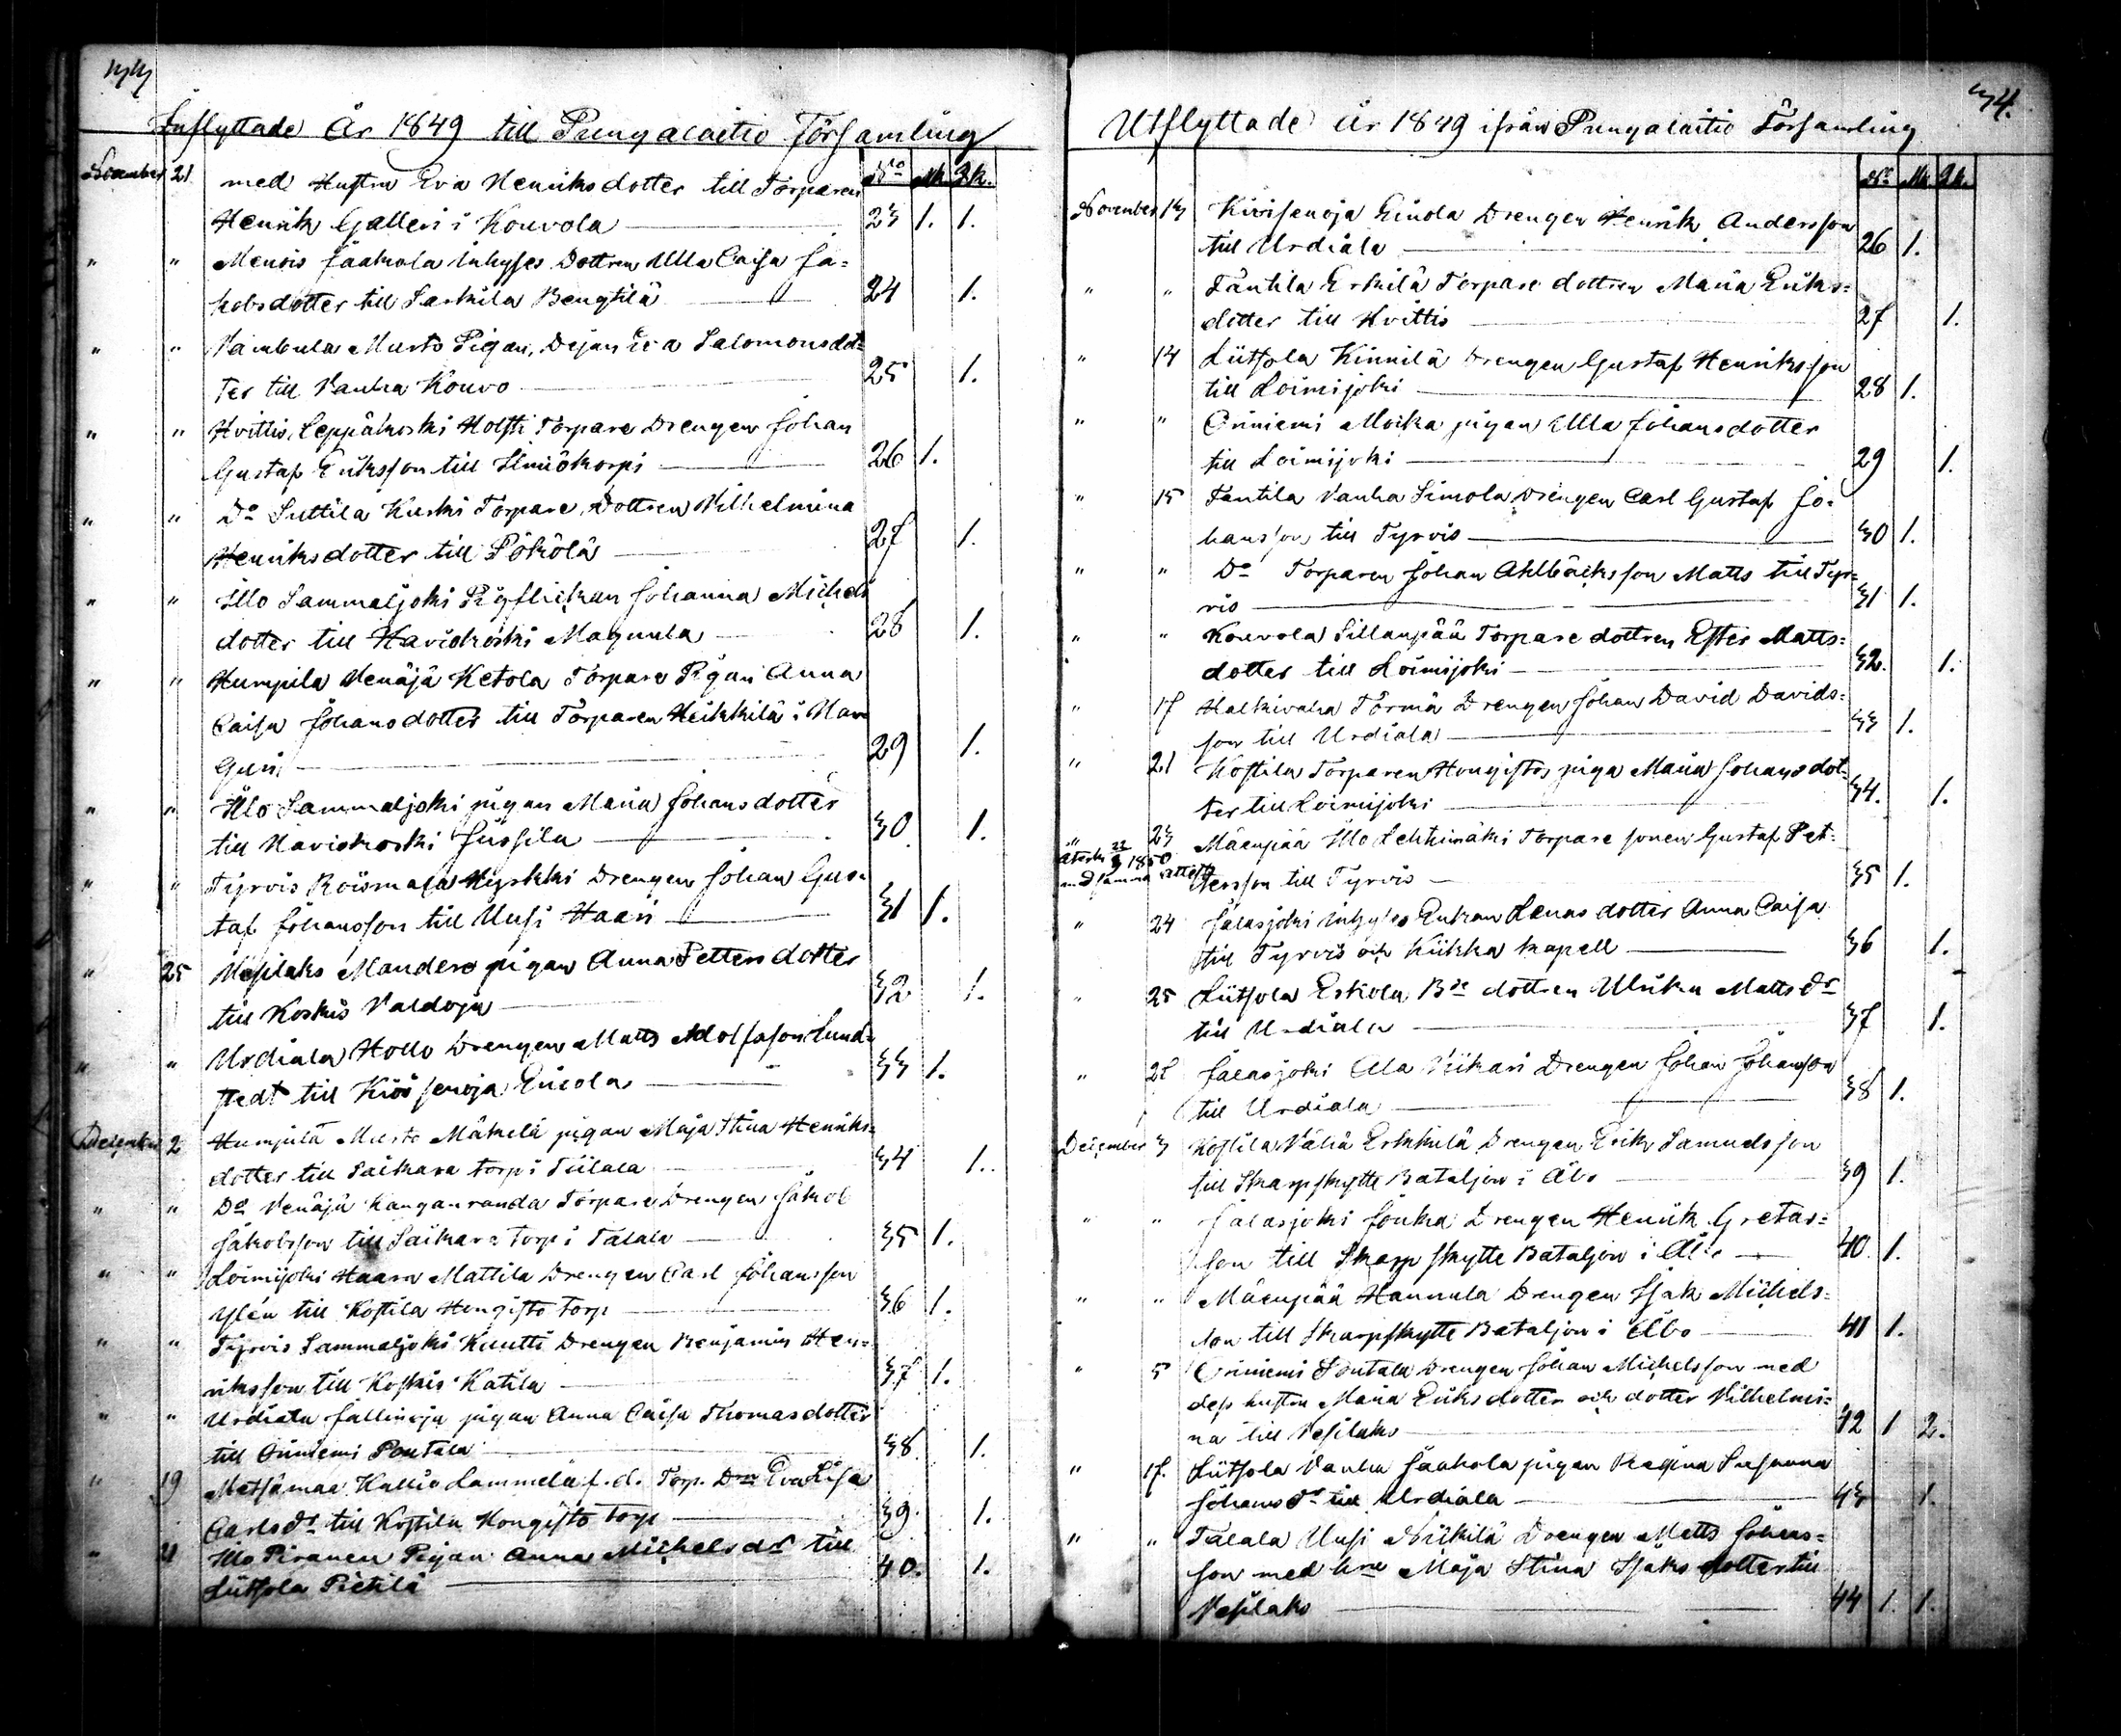 33
Inflyttade År 1849 till Pungalaitio Församling
No Mk. Qk.
November 21 med Hustru Eva Henriksdotter till Torparen
Henrik Galleri i Kouvola 23 1. 1.
" " Menois Jaakola Inhyses Dottren Ulla Caisa Ja=
kobsdotter till Sarkila Bengtilä 24 1.
" " Vambula Musto Pigan, Dejan Eva Salomonsdot=
ter till Vanha Kouvo 25 1.
" " Hvittis, Leppäkoski Holsti Torpare Drengen Johan
Gustaf Eriksson till Ilmiökorpi 26 1.
" " Do Suttila Kuski Torpare Dottren Wilhelmina
Henriksdotter till Pökölä 27 1.
" " Illo Sammaljoki Johanna Michels
dotter till Haviokoski Magnula 28 1.
" " Humpila Venäjä Ketola Torpare Pigan Anna
Caisa Johansdotter till Torparen Heikkilä i
29 1.
" " Illo Sammaljoki pigan Maria Johansdotter
till Haviokoski Jussila 30 1.
" " Tyrvis Roismala Hyrkki Drengen Johan Gus=
taf Johansson till Uusi Haari 31 1.
" 25 Vesilaks Mandero pigan Anna Pettersdotter
till Koskis Valdoja 32 1.
" " Urdiala Hollo Drengen Matts Adolfsson Lund=
stedt till Kivisenoja Einola 33 1.
December 2 Humpila Musto Mäkelä pigan Maja Stina Henriks=
dotter till Saikara torp i Tälala 34 1.
" " Do Venäjä Kanganranda Torpare Drengen Jakob
Jakobsson till Saikara Torp i Tälala 35 1.
" " Loimijoki Haara Mattila Drengen Carl Johansson
Ylén till Kostila Hongisto torp 36 1.
" " Tyrvis Sammaljoki Knutti Drengen Benjamin Hen=
riksson till Koskis Katila 37 1.
" " Urdiala Jallinoja pigan Anna Caisa Thomasdotter
till Oriniemi Pontala 38. 1.
" 19 Metsämaa Kallio Lammela f.d. Torp. Dn Eva Lisa
Carlsdr till Kostila Hongisto torp 39. 1.
" 21 Illo Piranen Pigan Anna Michelsdr till
Liitsola Pietilä 40. 1.
34.
Utflyttade År 1849 ifrån Pungalaitio Församling
No Mk Qk.
November 13 Kivisenoja Einola Drengen Henrik Andersson
till Urdiala 26 1.
" " Täntila Erkilä Torpare dottren Maria Eriks=
dotter till Hvittis 27 1.
" 14 Liitsola Kinnilä Drengen Gustaf Henriksson
till Loimijoki 28 1.
" " Oriniemi Moika pigan Ulla Johansdotter
till Loimijoki 29 1.
" 15 Tantila Vanha Simola Drengen Carl Gustaf Jo=
hansson till Tyrvis 30 1.
" " Do Torparen Johan Ahlbäcks son Matts till Tyr=
vis 31 1.
" " Kouvola Sillanpää Torpare dottren Ester Matts=
dotter till Loimijoki 32. 1.
" 17 Halkivaha Törmä Drengen Johan David Davids=
son till Urdiala 33 1.
" 21 Kostila Torparen Hongistos piga Maria Johansdot=
ter till Loimijoki 34. 1.
" 23 Mäenpää Illo Lehtimäki Torpare sonen Gustaf Pet=
Återk. 22/9 1850
med samma attest
tersson till Tyrvis 35 1.
" 24 Jalasjoki inhyses Enkan Lenas dotter Anna Caisa
till Tyrvis och Kiikka kapell 36 1.
" 25 Liitsola Eskola Bde dottren Ulrika Matts dr
till Urdiala 37 1.
" 28 Jalasjoki Ala Nikari Drengen Johan Johansson
till Urdiala 38 1.
December 3 Kostila Väliä Erkkilä Drengen Erik Samuelsson
till Skarpskytte Bataljon i Åbo 39 1.
" " Jalasjoki Jouka Drengen Henrik Gretas=
son till Skarp skytte Bataljon i Åbo 40. 1.
" " Mäenpää Hannula Drengen Isak Michels=
son till Skarpskytte Bataljon i Åbo 41 1.
" 5 Oriniemi Pontala Drengen Johan Michelsson med
dess hustru Maria Eriksdotter och dotter Vilhelmi=
na till Vesilaks 42 1 2.
" 17. Liitsola Vanha Jaakola pigan Regina Susanna
Johansdr till Urdiala 43 1.
" " Tälala Uusi Nikilä Drengen Matts Johans=
son med hru Maja Stina Isaks dotter till
Vesilaks 44 1. 1.